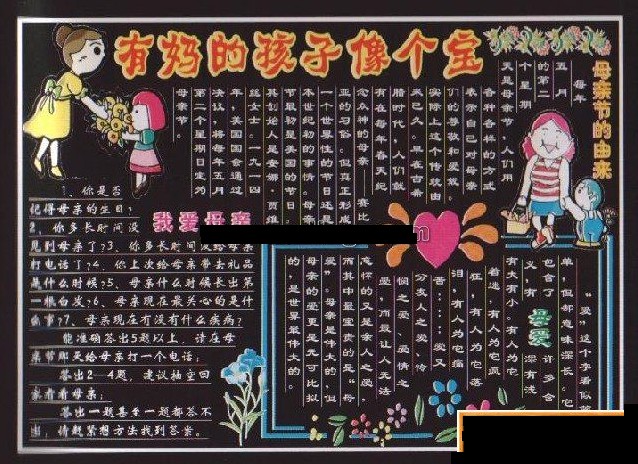 有妈的孩子像个宝
母亲节的由来
每年
五月
的第二
个星期
天是母亲节，人们用
各种各样的方式
表示自己对母亲
们的尊敬和爱戴。
实际上这个传统由
来已久。早在古希
腊时代，人们就
有在每年春天纪
念众神的母亲——赛比
亚的习俗。但真正形成
一个世界性的节日还是
本世纪初的事情。母亲
节最初是美国的节日，
其创始人是安娜·贾维
丝女士。一九一四
年，美国国会通过
决议，将每年五月
第二个星期日定为
母亲节。
我爱母亲
1、你是否
记得母亲的生日？
2、你多长时间没
见到母亲了？3、你多长时间没给母亲
打电话了？4、你上次给母亲带去礼品
是什么时候？5、母亲什么时候长出第
一根白发？6、母亲现在最关心的是什
么事？7、母亲现在有没有什么疾病？
能准确答出5题以上，请在母
亲节那天给母亲打一个电话；
答出2—4题，建议抽空回
家看看母亲；
答出一题甚至一题都答不
出，请赶紧想方法找到答案。
母爱
“爱”这个字看似简
单，但却意味深长。它
包含了许多含
义，有深有浅
有大有小。有人为它
着迷，有人为它疯
狂，有人为它落
泪，有人为它痛
苦……爱又
分友人之爱、怜
悯之爱、爱情之
爱，而最让人无法
忘怀的又是亲人之爱，
而其中最宝贵的是“母
爱”。母爱是伟大的，但
母亲的爱更是无可比拟
的，是世界最伟大的。